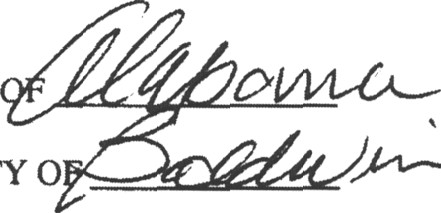 OF Alabama
TY OF Baldwin